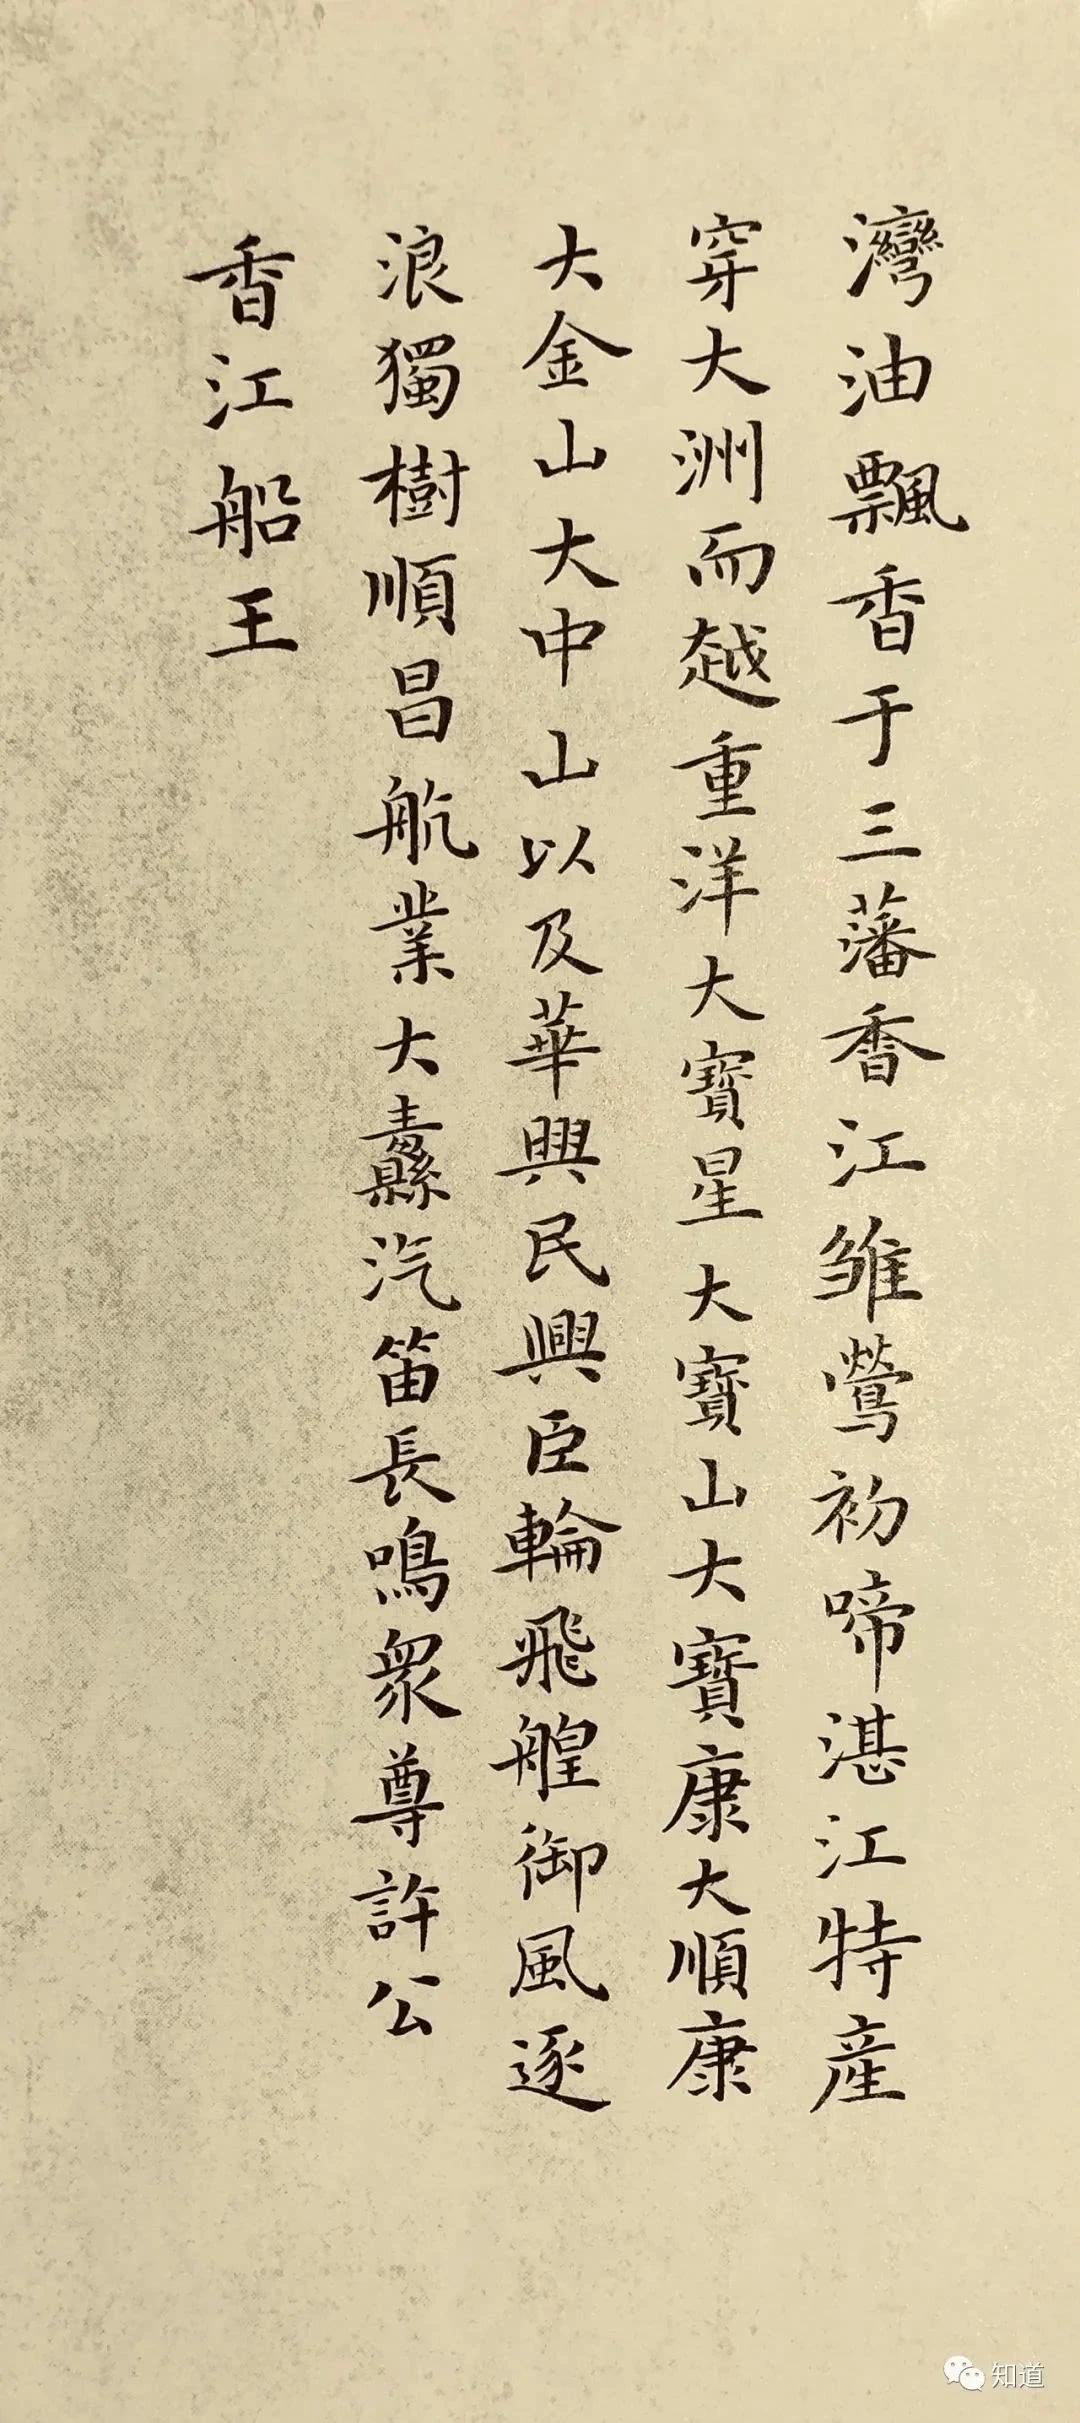 灣油飄香于三藩香江雏鶯初啼湛江特産
穿大洲而越重洋大寶星大寶山大寶康大順康
大金山大中山以及華興民興臣輪飛艎御風逐
浪獨樹順昌航業大纛汽笛長鳴衆尊許公
香江船王
知道